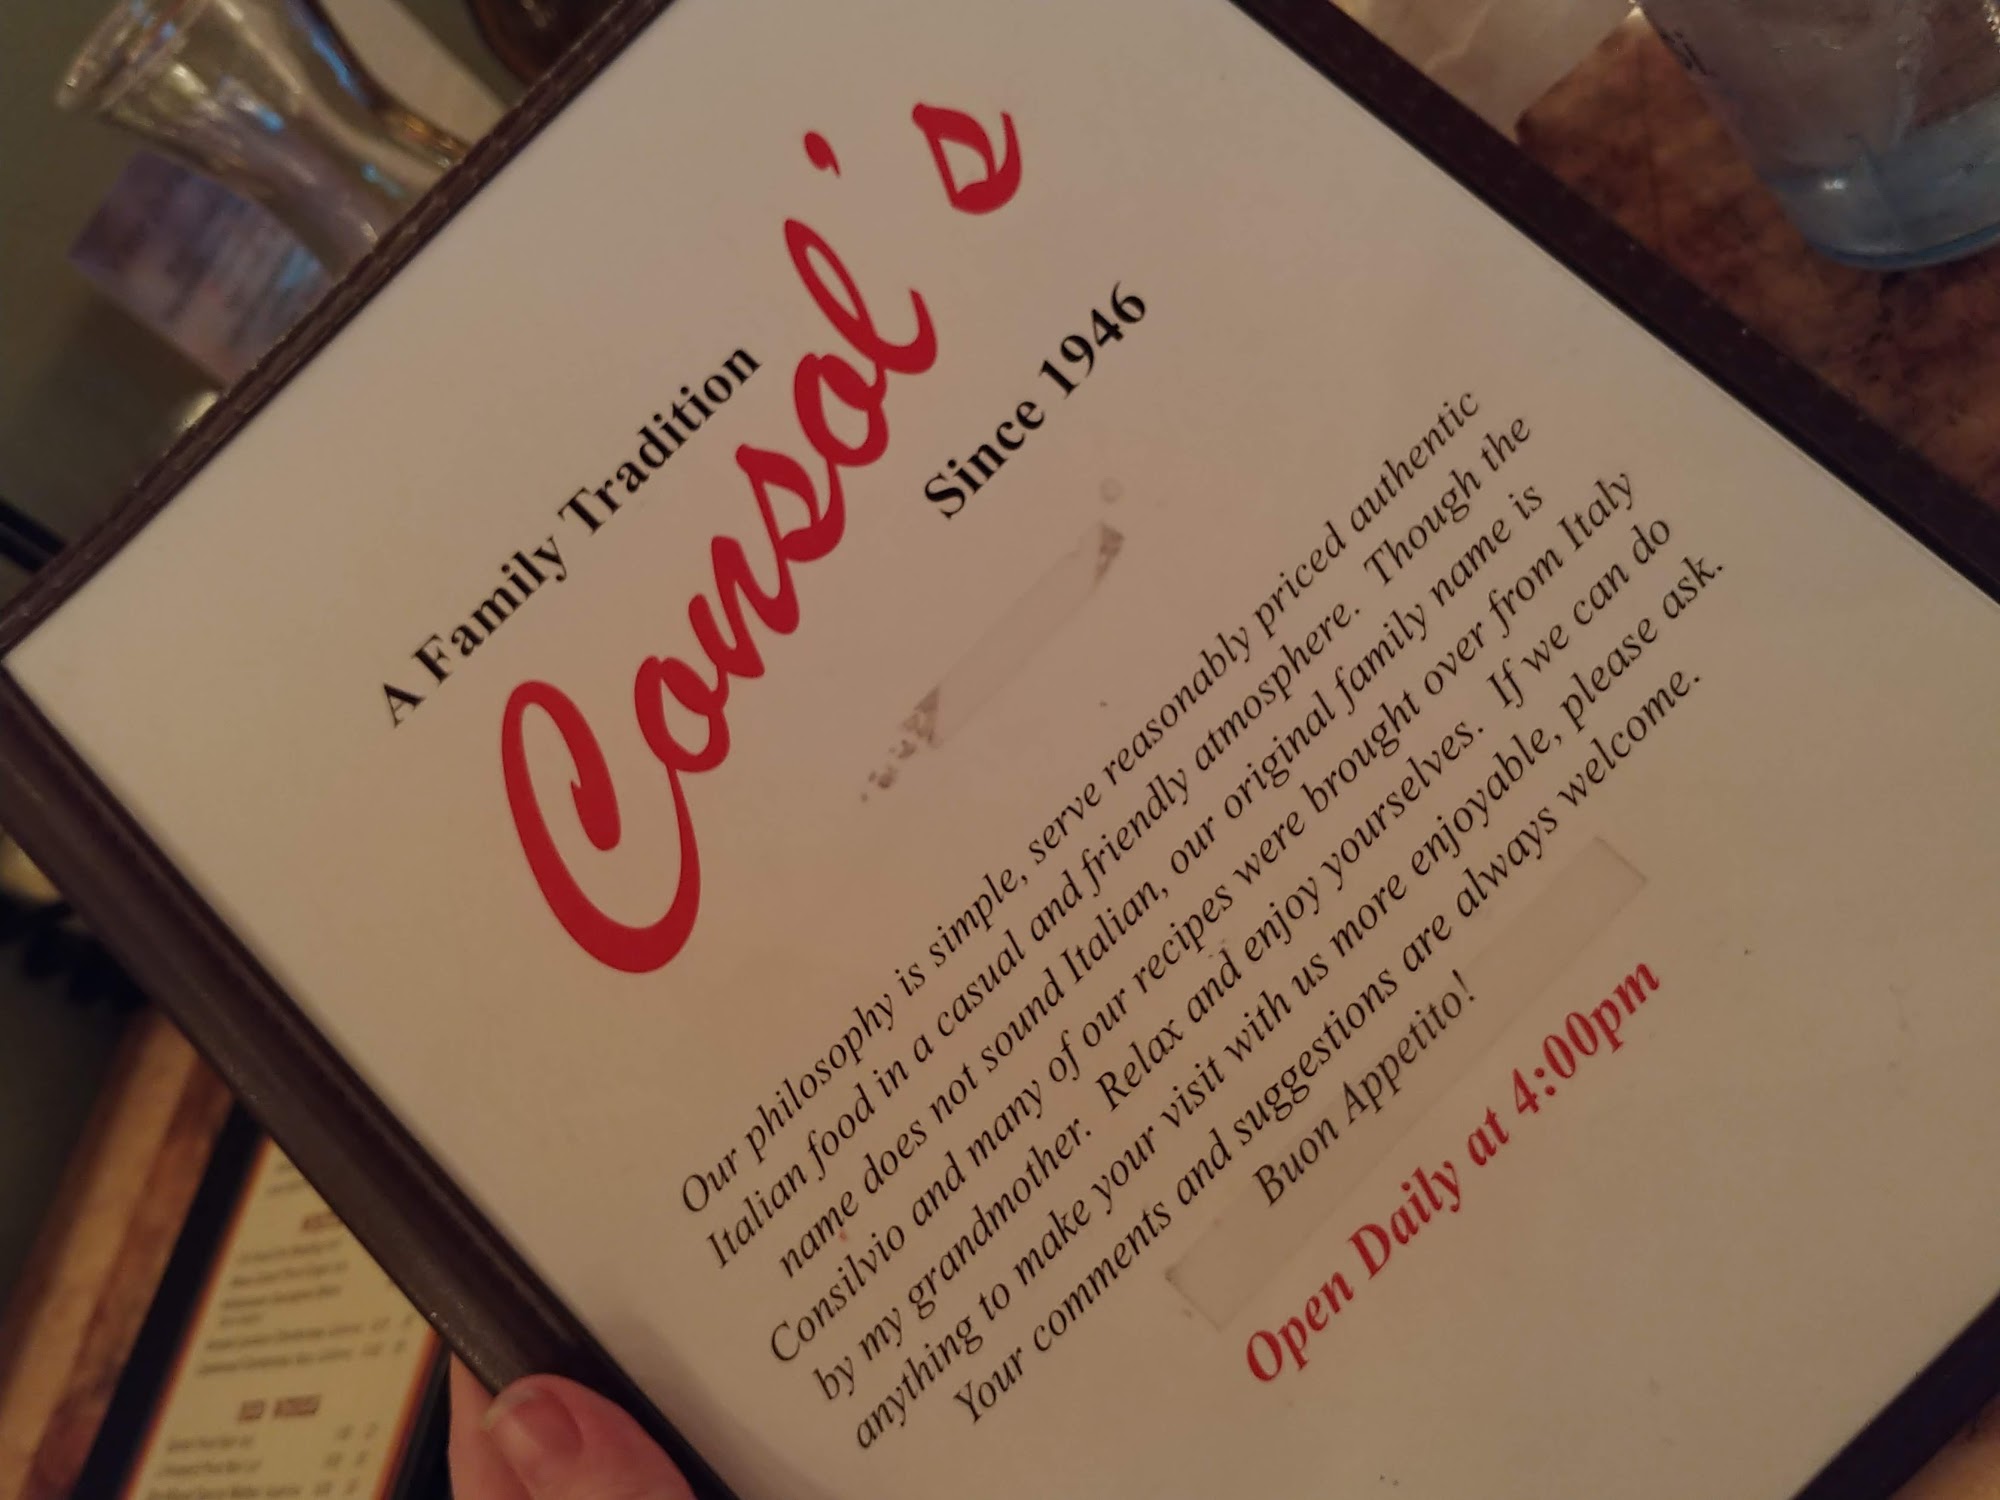 A Family Tradition
Consol's
Since 1946
Our philosophy is simple, serve reasonably priced authentic
Italian food in a casual and friendly atmosphere. Though the
name does not sound Italian, our original family name is
Consilvio and many of our recipes were brought over from Italy
by my grandmother. Relax and enjoy yourselves. If we can do
anything to make your visit with us more enjoyable, please ask.
Your comments and suggestions are always welcome.
Buon Appetito!
Open Daily at 4:00pm